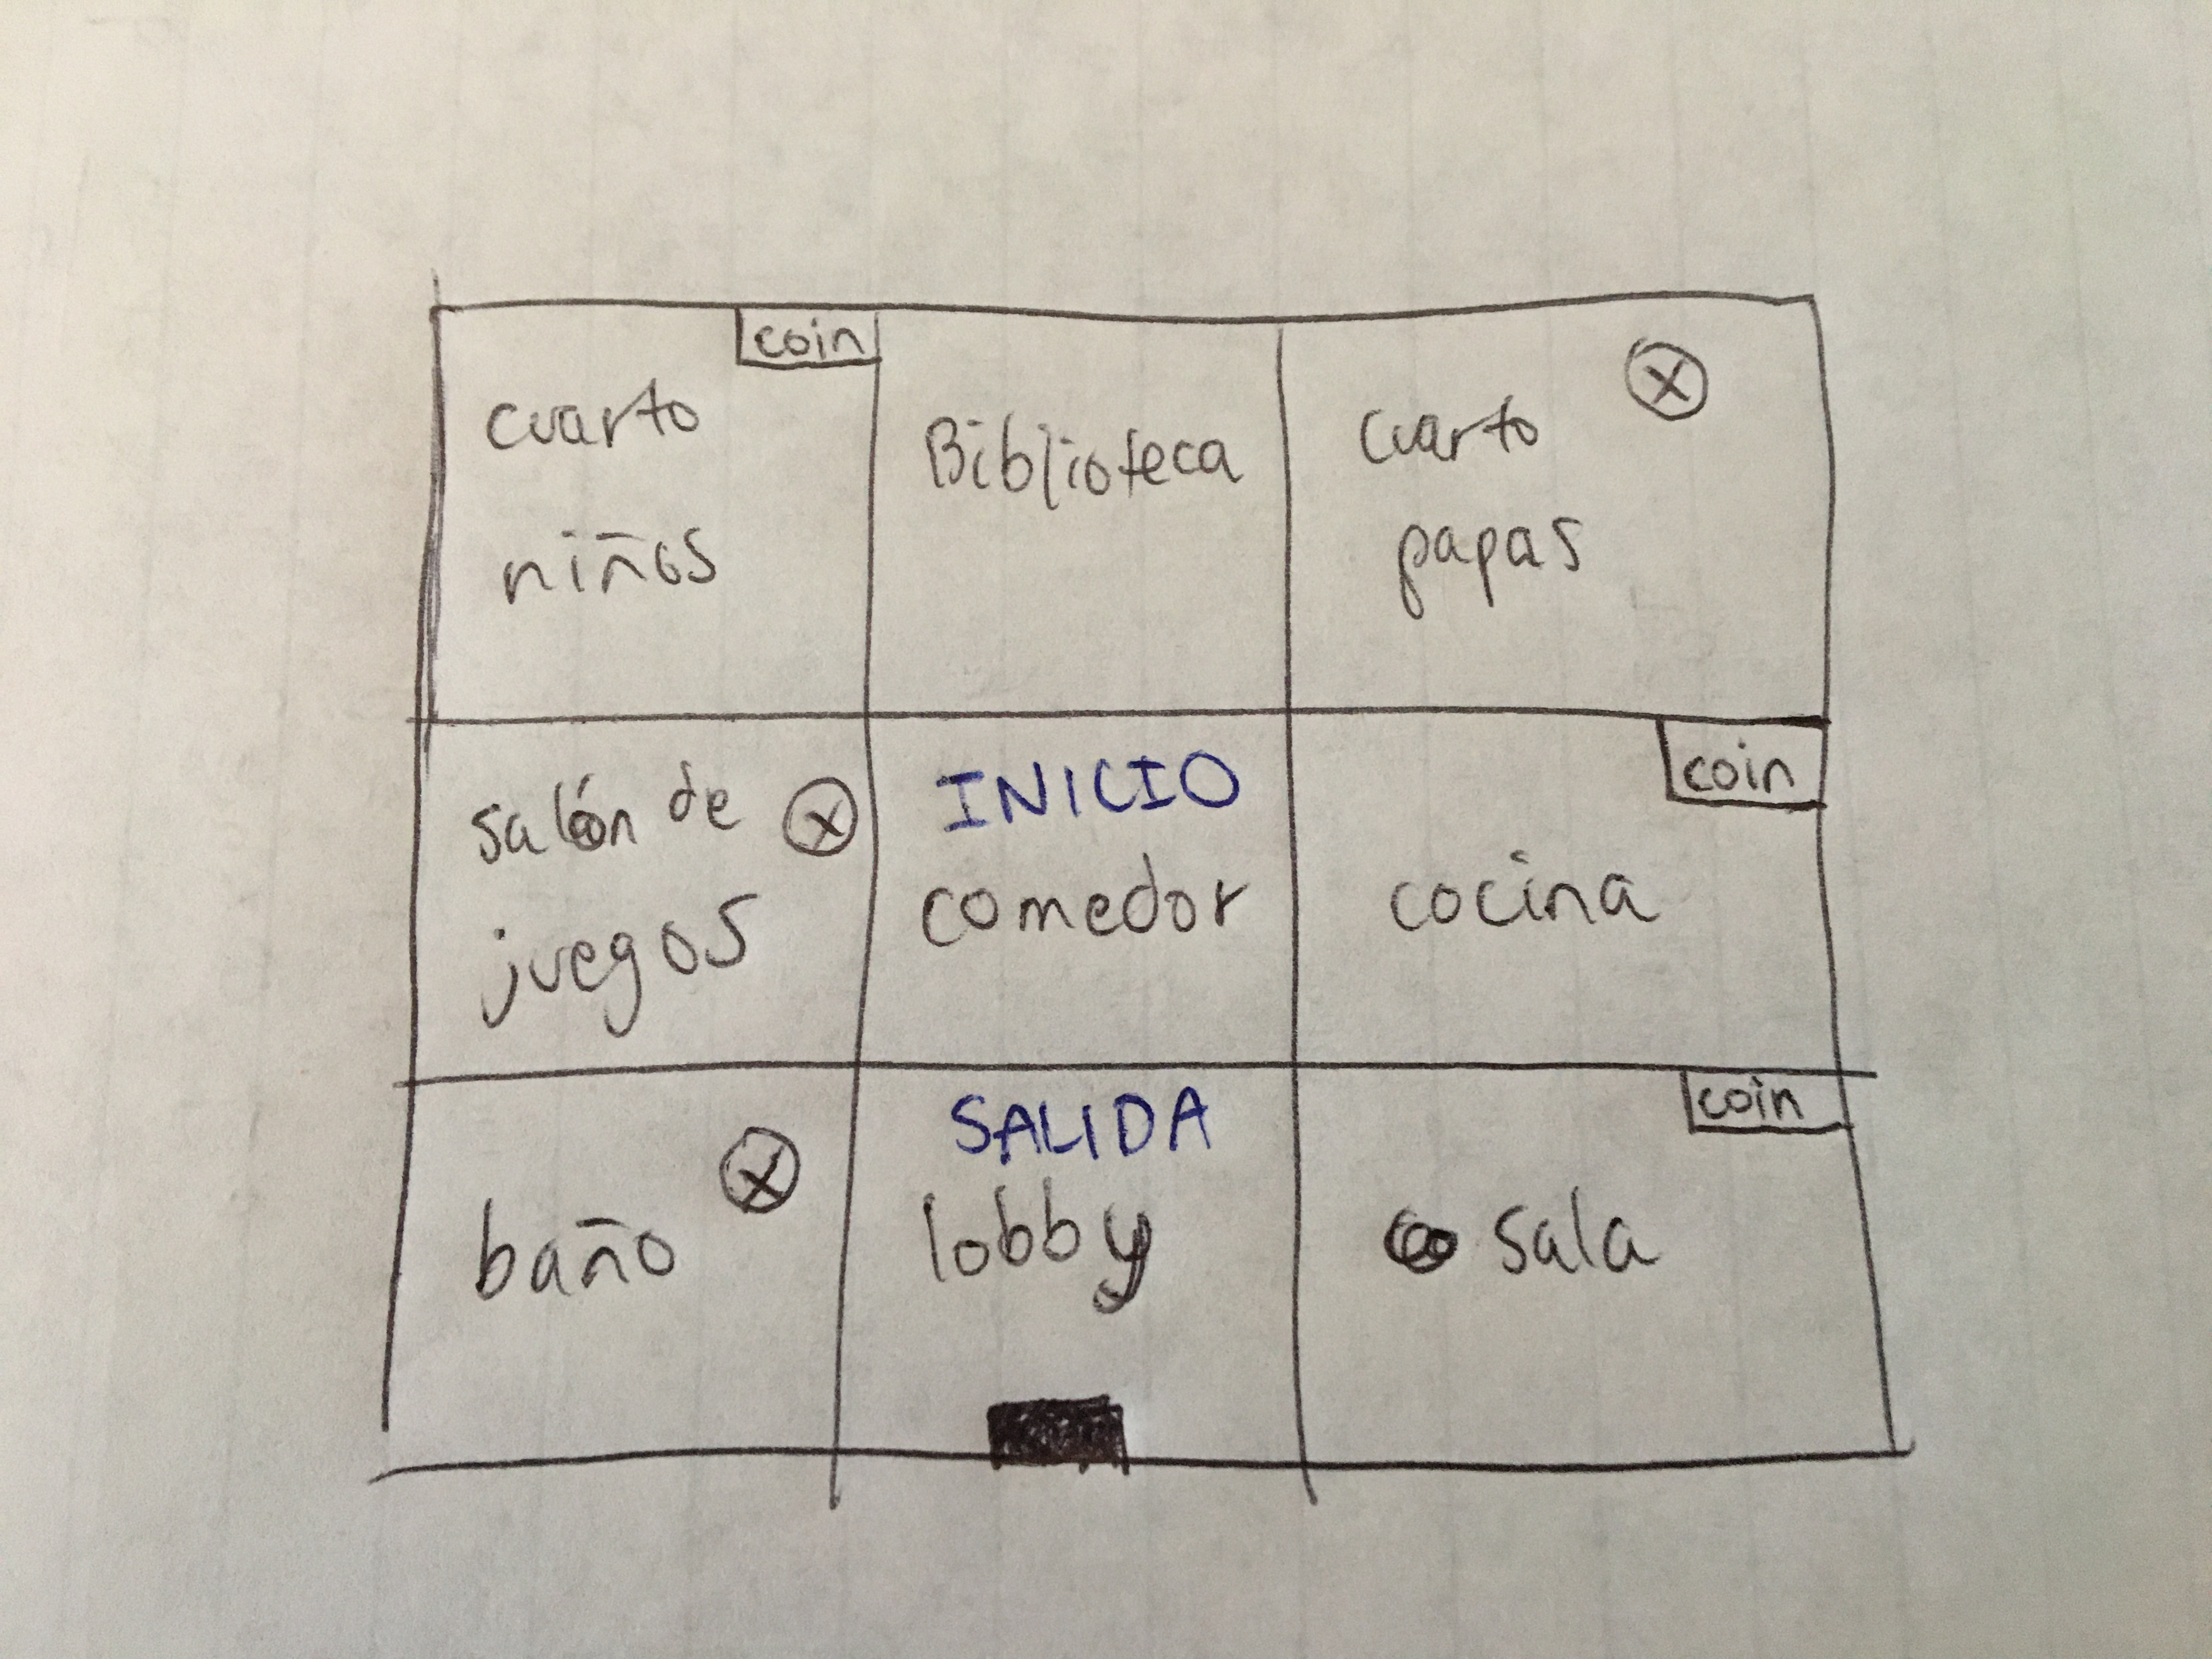 coin
cuarto
niños
Biblioteca
X
cuarto
papas
salón de
X
juegos
INICIO
comedor
coin
cocina
X
baño
SALIDA
lobby
coin
sala